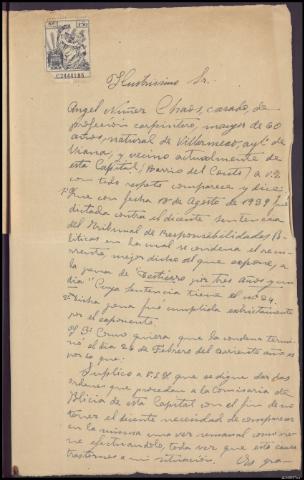 C2444185
Ilustrisimo Sr.
Angel Núñez Chaos, casado, de
profesión carpintero, mayor de 60
años, natural de Villarmeao, aytº de
Viana, y vecino actualmente de
esta Capital (Barrio del Couto) a V.S.
con todo respeto comparece y dice:
1º Que con fecha de Agosto de 1939 fué
dictada contra el dicente sentencia
del Tribunal de Responsabilidades Po-
liticas en la cual se condena al recu-
rrente, mejor dicho al que expone, a
la pena de Destierro por tres años y un
día. Cuya sentencia tiene el nº 24.
2º Dicha pena fué cumplida estrictamente
por el exponente.
3º Como quiera que la condena termi-
nó el día 26 de Febrero del corriente año es
por lo que:
Suplico a V.S.I. que se digne dar las
ordenes que procedan a la Comisaria de
Policia de esta Capital con el fin de no
tener el dicente necesidad de comparecer
en la misma una vez semanal como vie-
ne efectuándolo, toda vez que esto causa
trastornos a mi situación. Es gra-